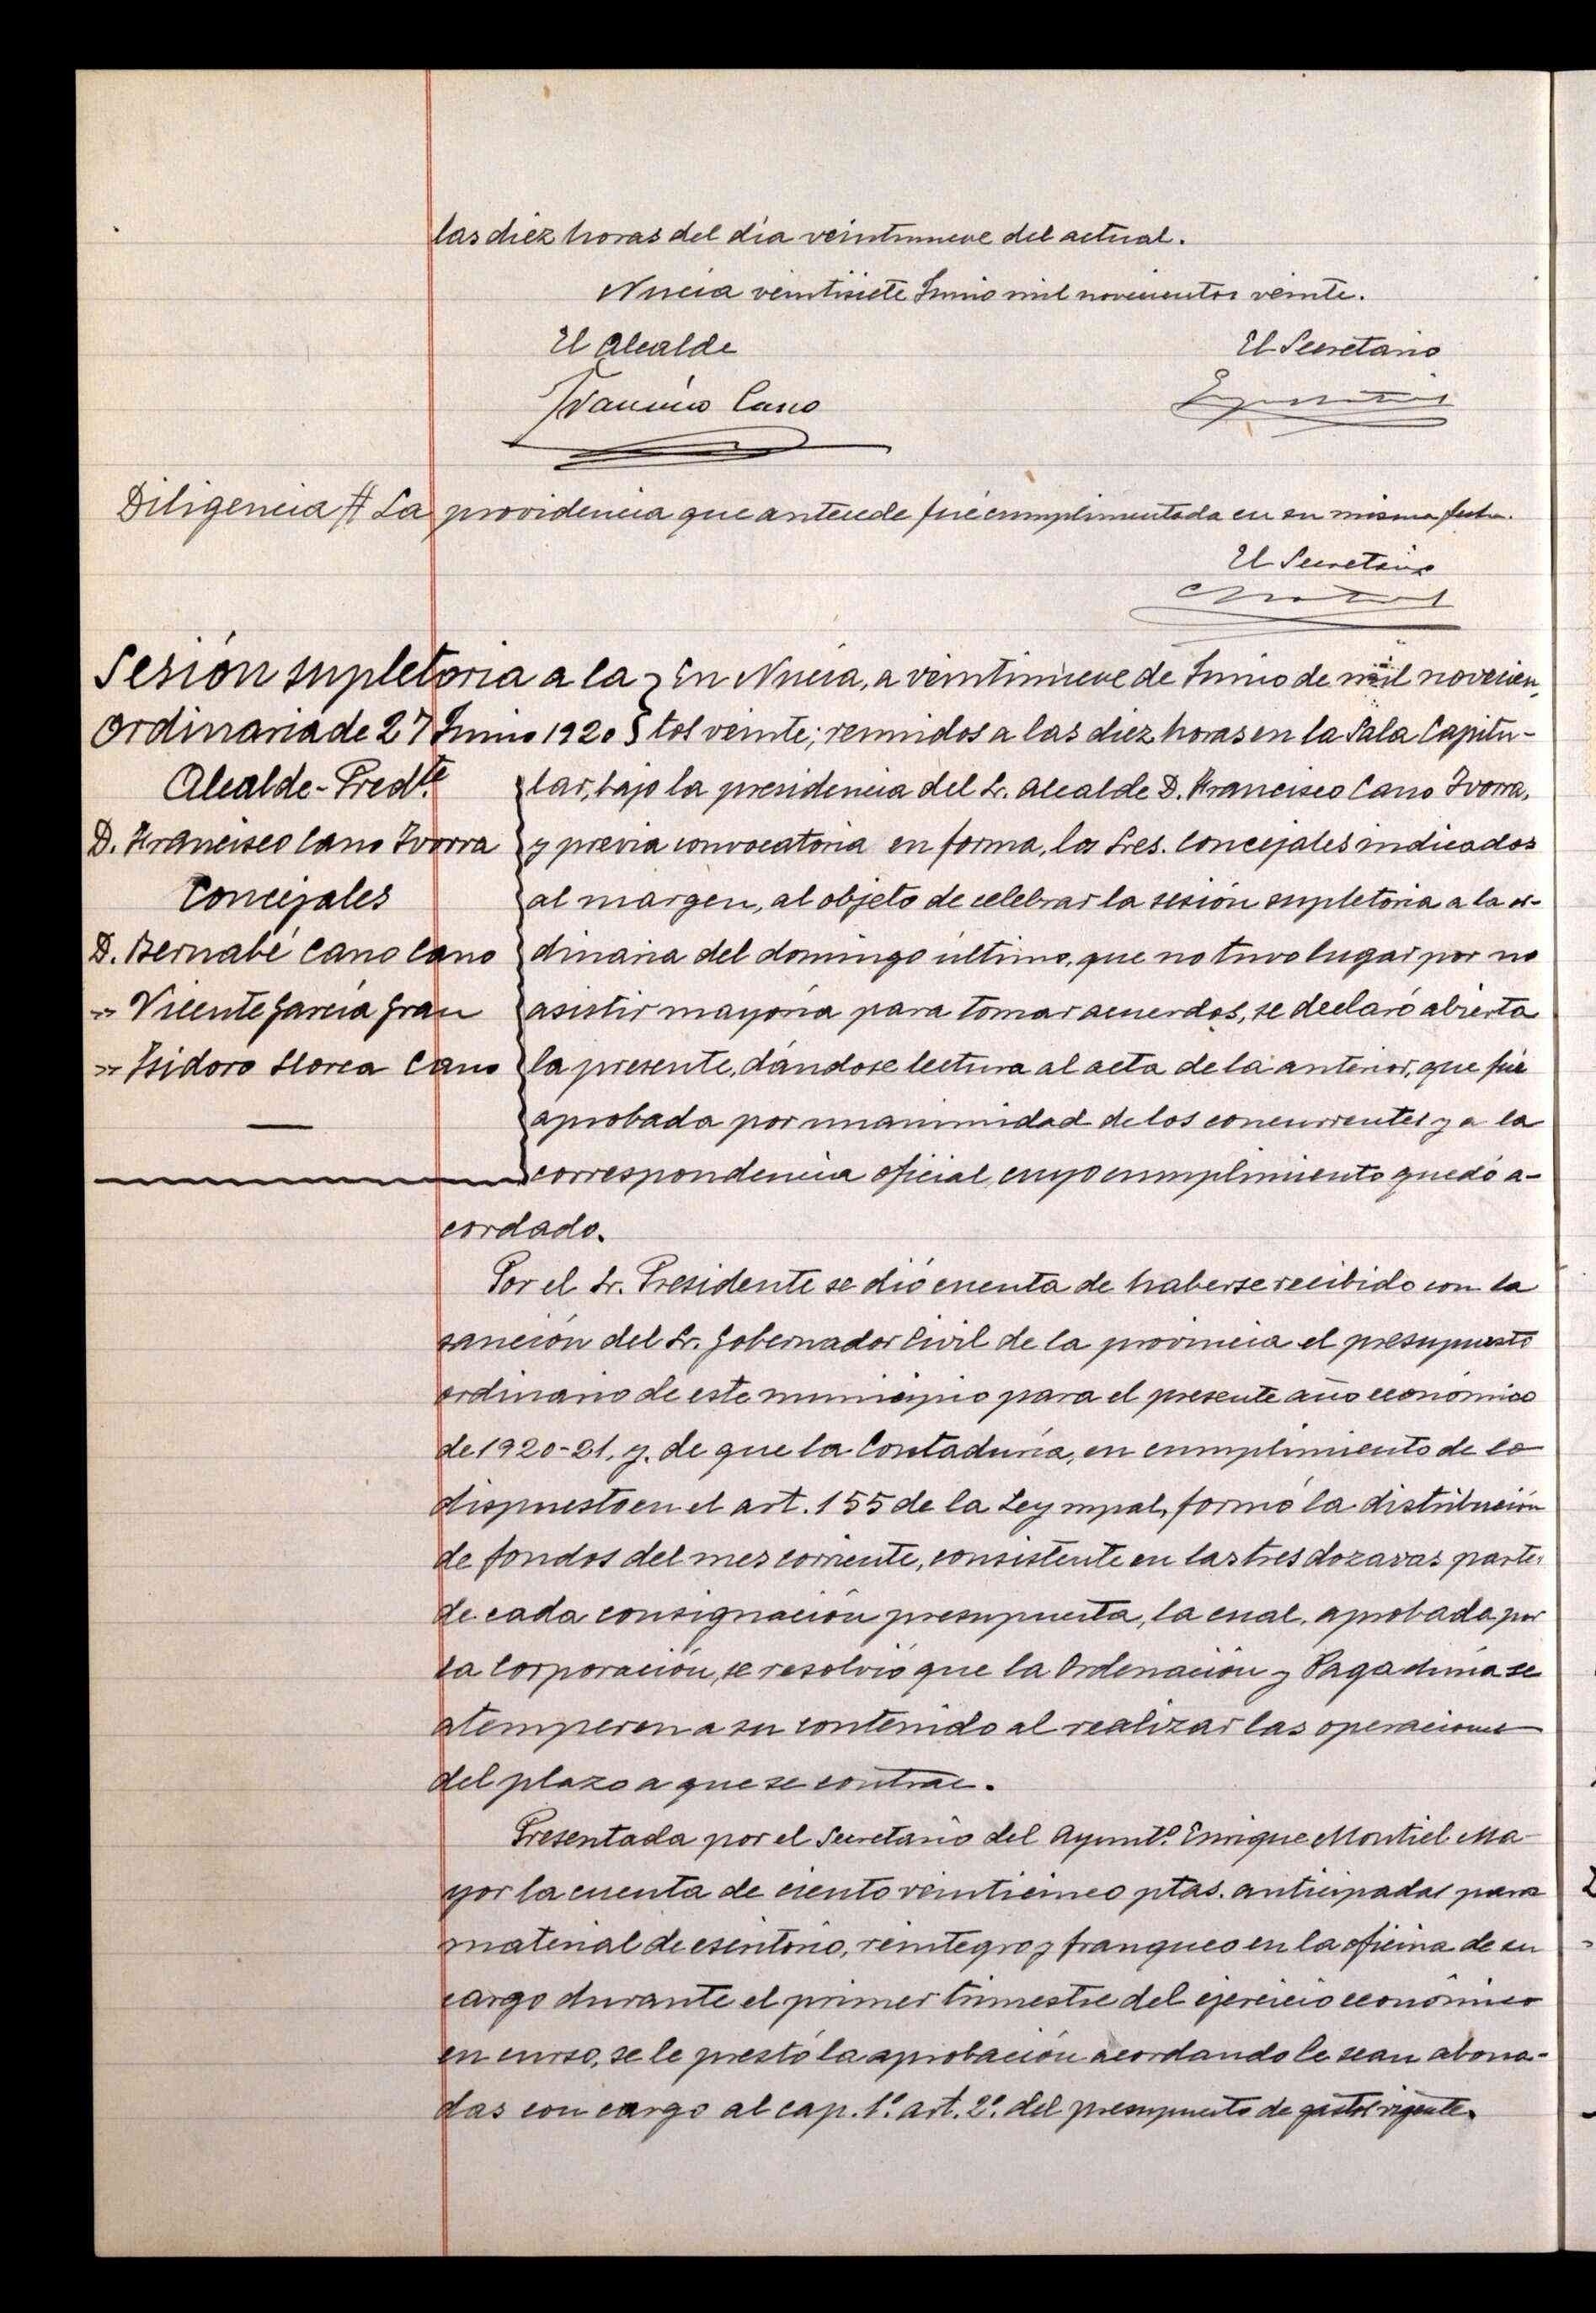 las diez horas del día veintinueve del actual.
Nucia veintisiete Junio mil novecientos veinte.
El Alcalde
El Secretario
Francisco Cano
Diligencia # La providencia que antecede fué cumplimentada en su misma fecha.
El Secretario
Sesión supletoria a la
ordinaria de 27 Junio 1920
Alcalde-Predte.
D. Francisco Cano Ivorra
Concejales
D. Bernabé Cano Cano
" Vicente García Grau
" Isidoro Llorca Cano
En Nucia, a veintinueve de Junio de mil novecien-
tos veinte; reunidos a las diez horas en la Sala Capitu-
lar, bajo la presidencia del Sr. Alcalde D. Francisco Cano Ivorra,
y previa convocatoria en forma, los Sres. Concejales indicados
al margen, al objeto de celebrar la sesión supletoria a la or-
dinaria del domingo último, que no tuvo lugar por no
asistir mayoría para tomar acuerdos, se declaró abierta
la presente, dándose lectura al acta de la anterior, que fué
aprobada por unanimidad de los concurrentes y a la
correspondencia oficial, cuyo cumplimiento quedó a-
cordado.
Por el Sr. Presidente se dió cuenta de haberse recibido con la
sanción del Sr. Gobernador Civil de la provincia el presupuesto
ordinario de este municipio para el presente año económico
de 1920-21, y, de que la Contaduría, en cumplimiento de lo
dispuesto en el art. 155 de la Ley mpal, formó la distribución
de fondos del mes corriente, consistente en las tres dozavas partes
de cada consignación presupuesta, la cual, aprobada por
la Corporación, se resolvió que la Ordenación y Pagaduría se
atemperen a su contenido al realizar las operaciones
del plazo a que se contrae.
Presentada por el Secretario del Ayuntº. Enrique Montiel Ma-
yor la cuenta de ciento veinticinco ptas. anticipadas para
material de escritorio, reintegro y franqueo en la oficina de su
cargo durante el primer trimestre del ejercicio económico
en curso, se le prestó la aprobación acordando le sean abona-
das con cargo al cap. 1º. art. 2º. del presupuesto de gastos vigente.